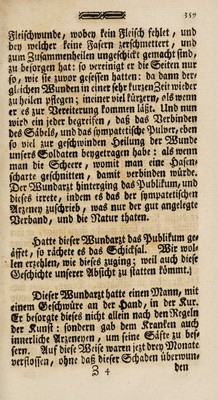 359
Fleischwunde, wobey kein Fleisch fehlet, und
bey welcher keine Fasern zerschmettert, und
zum Zusammenheilen ungeschickt gemacht sind,
zu besorgen hat: so vereinigt er die Seiten nur
so, wie sie zuvor gesessen hatten: da dann der-
gleichen Wunden in einer sehr kurzen Zeit wieder
zu heilen pflegen; immer viel kürzern, als wenn
er es zur Vereiterung kommen läßt. Und nun
wird ein jeder begreifen, daß das Verbinden
des Säbels, und das sympatetische Pulver, eben
so viel zur geschwinden Heilung der Wunde
unsers Soldaten beygetragen habe: als wenn
man die Scheere, womit man eine Hasen-
scharte geschnitten, damit verbinden würde.
Der Wundarzt hinterging das Publikum, und
dieses irrete, indem es das der sympatetischen
Arzeney zuschrieb, was nur der gut angelegte
Verband, und die Natur thaten.
Hatte dieser Wundarzt das Publikum ge-
äffet, so rächete es das Schicksal. Wir wol-
len erzehlen, wie dieses zuging; weil auch diese
Geschichte unserer Absicht zu statten kömmt.)
Dieser Wundarzt hatte einen Mann, mit
einem Geschwüre an der Hand, in der Kur.
Er besorgte dieses nicht allein nach den Regeln
der Kunst: sondern gab dem Kranken auch
innerliche Arzeneyen, um seine Säfte zu bes-
sern. Auf diese Weise waren jetzt drey Monate
verflossen, ohne daß dieser Schaden überwun-
Z 4 den